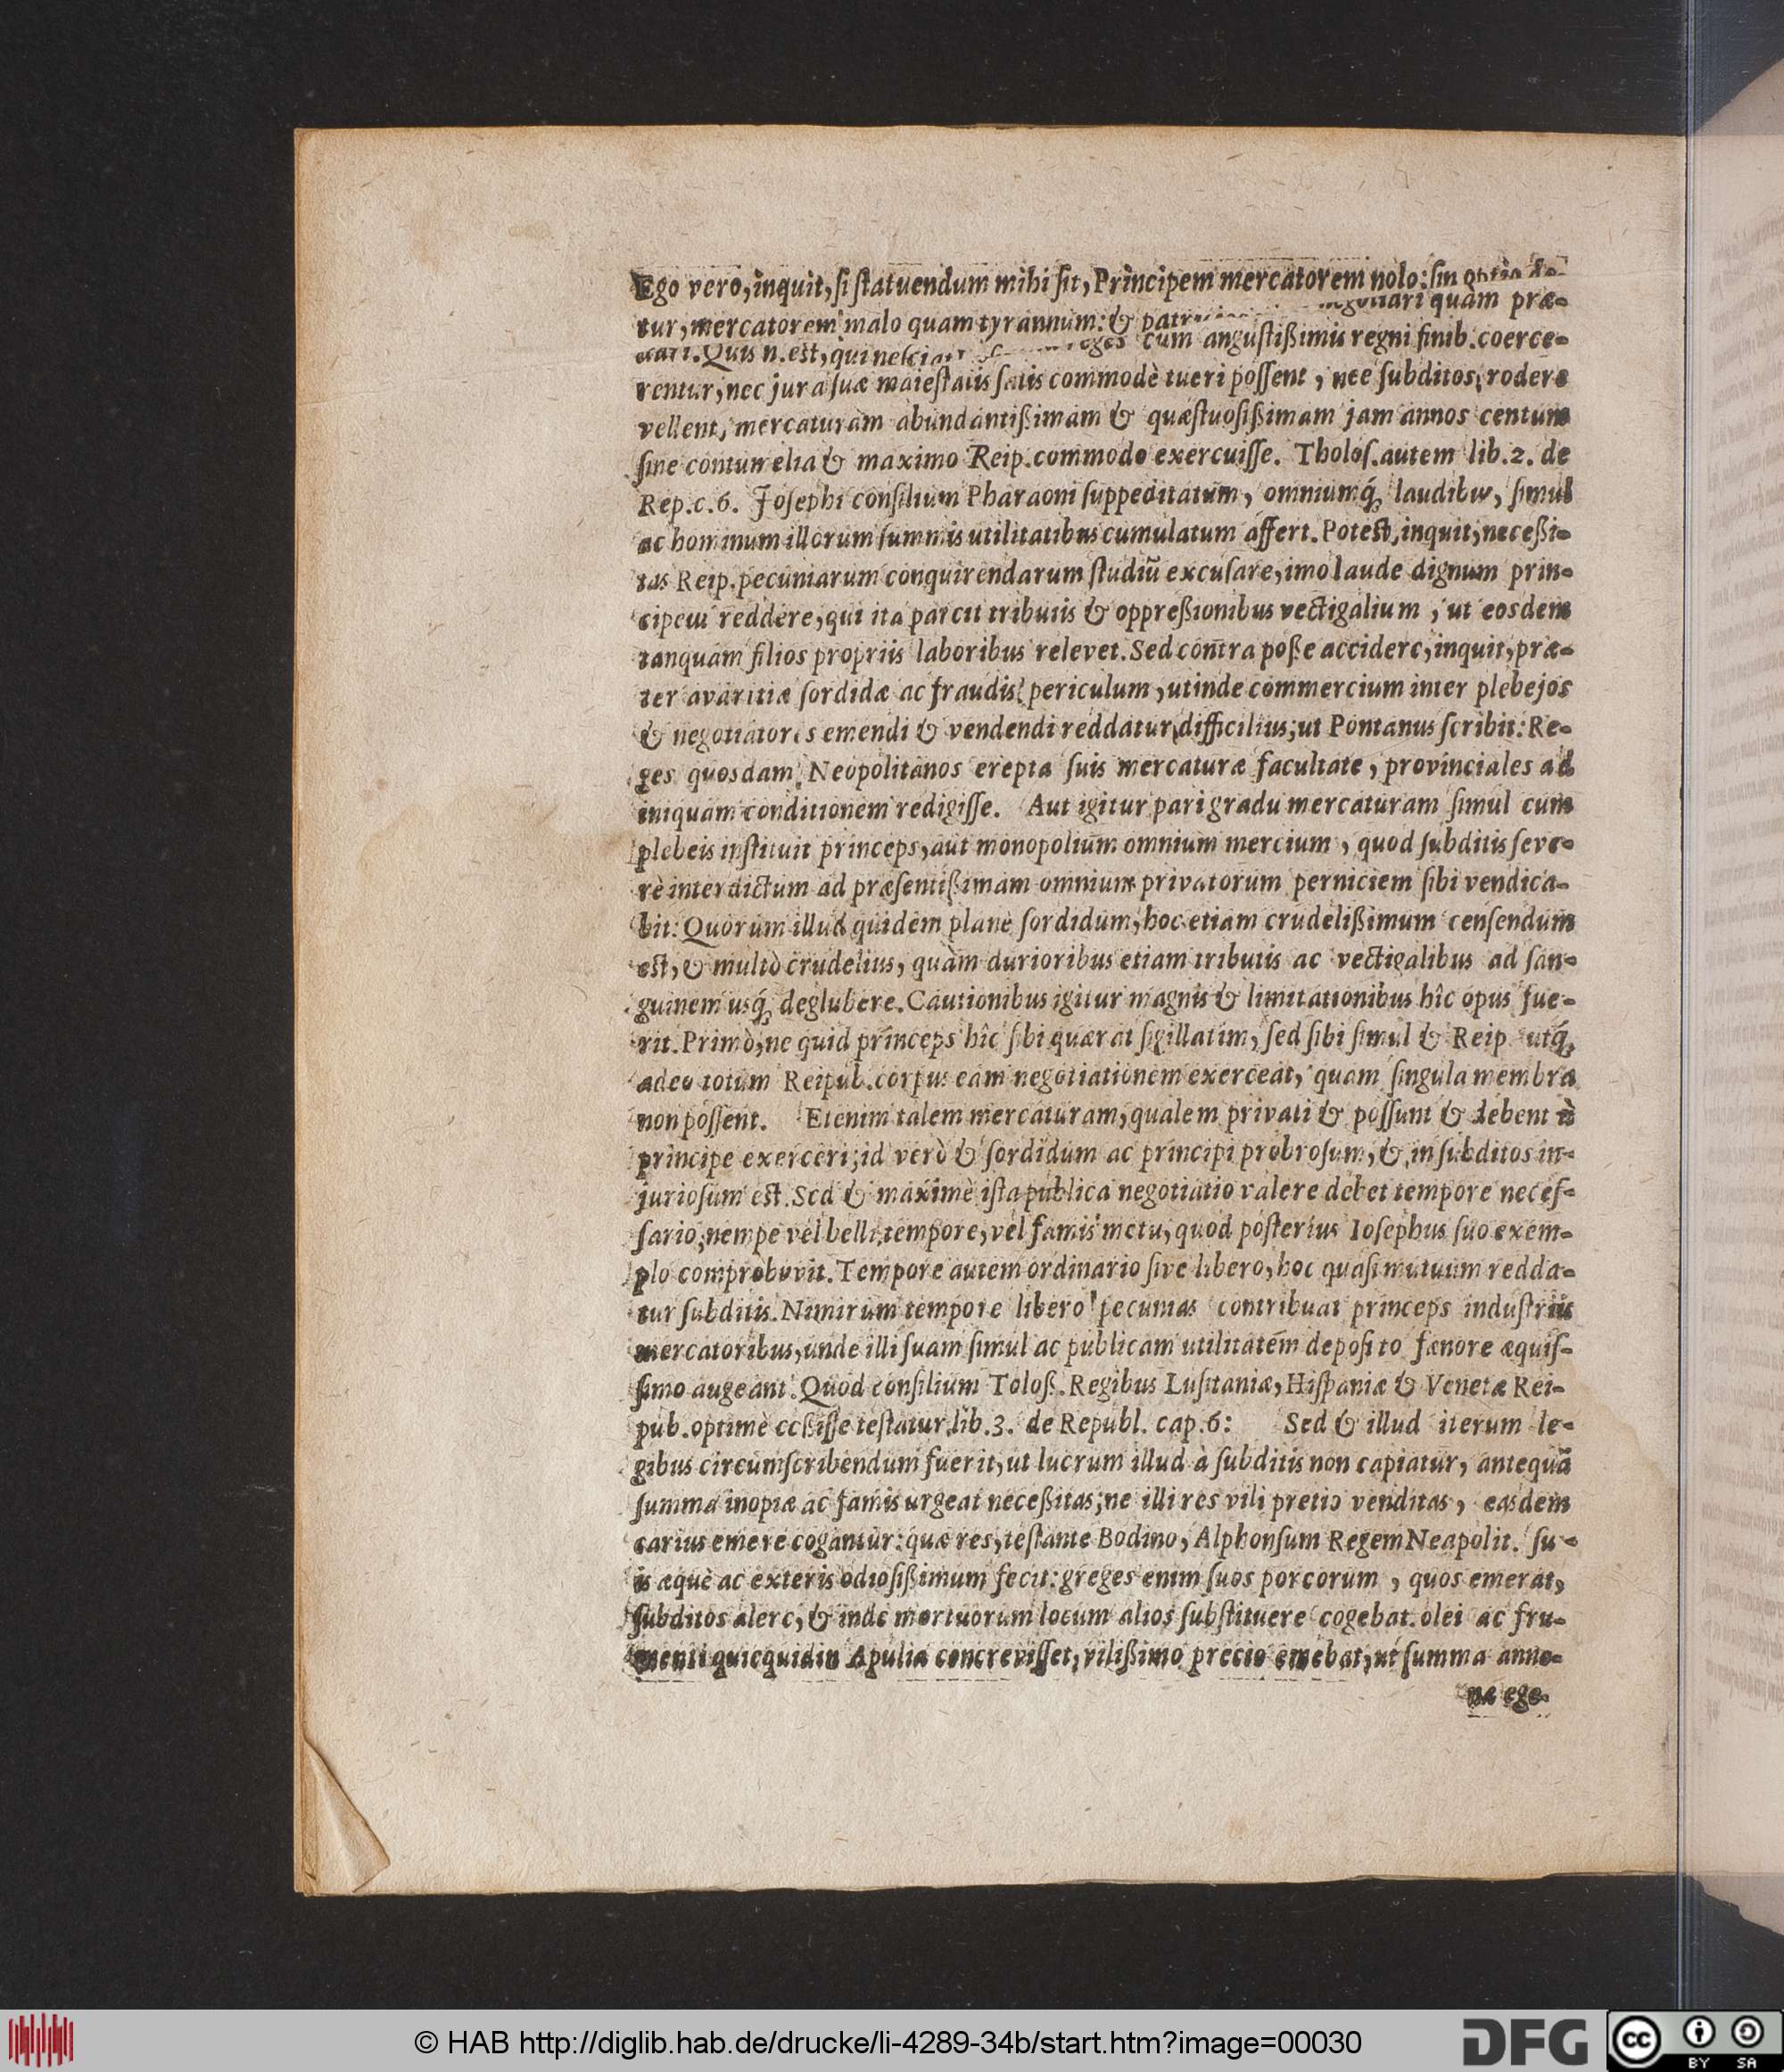 Ego vero, inquit, si statuendum mihi sit, Principem mercatorem nolo: sin optio de-
tur, mercatorem malo quam tyrannum: & negotiari quam præ-
dari. Quis n. est, qui nesciat reges cum angustißimis regni finib. coerce-
rentur, nec jura suæ maiestatis satis commodè tueri possent, nec subditos rodere
vellent, mercaturam abundantißimam & quæstuosißimam jam annos centum
sine contumelia & maximo Reip. commodo exercuisse. Tholos. autem lib. 2. de
Rep. c. 6. Josephi consilium Pharaoni suppeditatum, omniumq́; laudibus, simul
ac hominum illorum summis utilitatibus cumulatum affert. Potest, inquit, neceßi-
tas Reip. pecuniarum conquirendarum studiũ excusare, imo laude dignum prin-
cipem reddere, qui ita parcit tributis & oppreßionibus vectigalium, ut eosdem
tanquam filios propriis laboribus relevet. Sed contra poße accidere, inquit, præ-
ter avaritiæ sordidæ ac fraudis periculum, ut inde commercium inter plebejos
& negotiatores emendi & vendendi reddatur difficilius; ut Pontanus scribit: Re-
ges quosdam Neopolitanos erepta suis mercaturæ facultate, provinciales ad
iniquam conditionem redigisse. Aut igitur pari gradu mercaturam simul cum
plebeis instituit princeps, aut monopolium omnium mercium, quod subditis seve-
rè interdictum ad præsentißimam omnium privatorum perniciem sibi vendica-
bit: Quorum illud quidem planè sordidum, hoc etiam crudelißimum censendum
est, & multò crudelius, quàm durioribus etiam tributis ac vectigalibus ad san-
guinem usq́; deglubere. Cautionibus igitur magnis & limitationibus hîc opus fue-
rit. Primò, ne quid princeps hîc sibi quærat sigillatim, sed sibi simul & Reip utq́;
adeo totum Reipub. corpus eam negotiationem exerceat, quam singula membra
non possent. Etenim talem mercaturam, qualem privati & possunt & debent à
principe exerceri; id verò & sordidum ac principi probrosum, & in subditos in-
juriosum est. Sed & maximè ista publica negotiatio valere debet tempore neces-
sario, nempe vel belli tempore, vel famis metu, quod posterius Iosephus suo exem-
plo comprobavit. Tempore autem ordinario sive libero, hoc quasi mutuum redda-
tur subditis. Nimirum tempore libero pecunias contribuat princeps industriis
mercatoribus, unde illi suam simul ac publicam utilitatem deposito fœnore æquis-
simo augeant. Quod consilium Toloß. Regibus Lusitaniæ, Hispaniæ & Venetæ Rei-
pub. optimè ceßisse testatur lib. 3. de Republ. cap. 6: Sed & illud iterum le-
gibus circumscribendum fuerit, ut lucrum illud à subditis non capiatur, antequã
summa inopiæ ac famis urgeat neceßitas; ne illi res vili pretio venditas, easdem
carius emere cogantur: quæ res, testante Bodino, Alphonsum Regem Neapolit. su-
is æquè ac exteris odiosißimum fecit: greges enim suos porcorum, quos emerat,
subditos alere, & inde mortuorum locum alios substituere cogebat. olei ac fru-
menti quicquid in Apulia concrevisset, vilißimo precio emebat, ut summa anno-
næ ege-
© HAB http://diglib.hab.de/drucke/li-4289-34b/start.htm?image=00030
DFG
cc BY SA